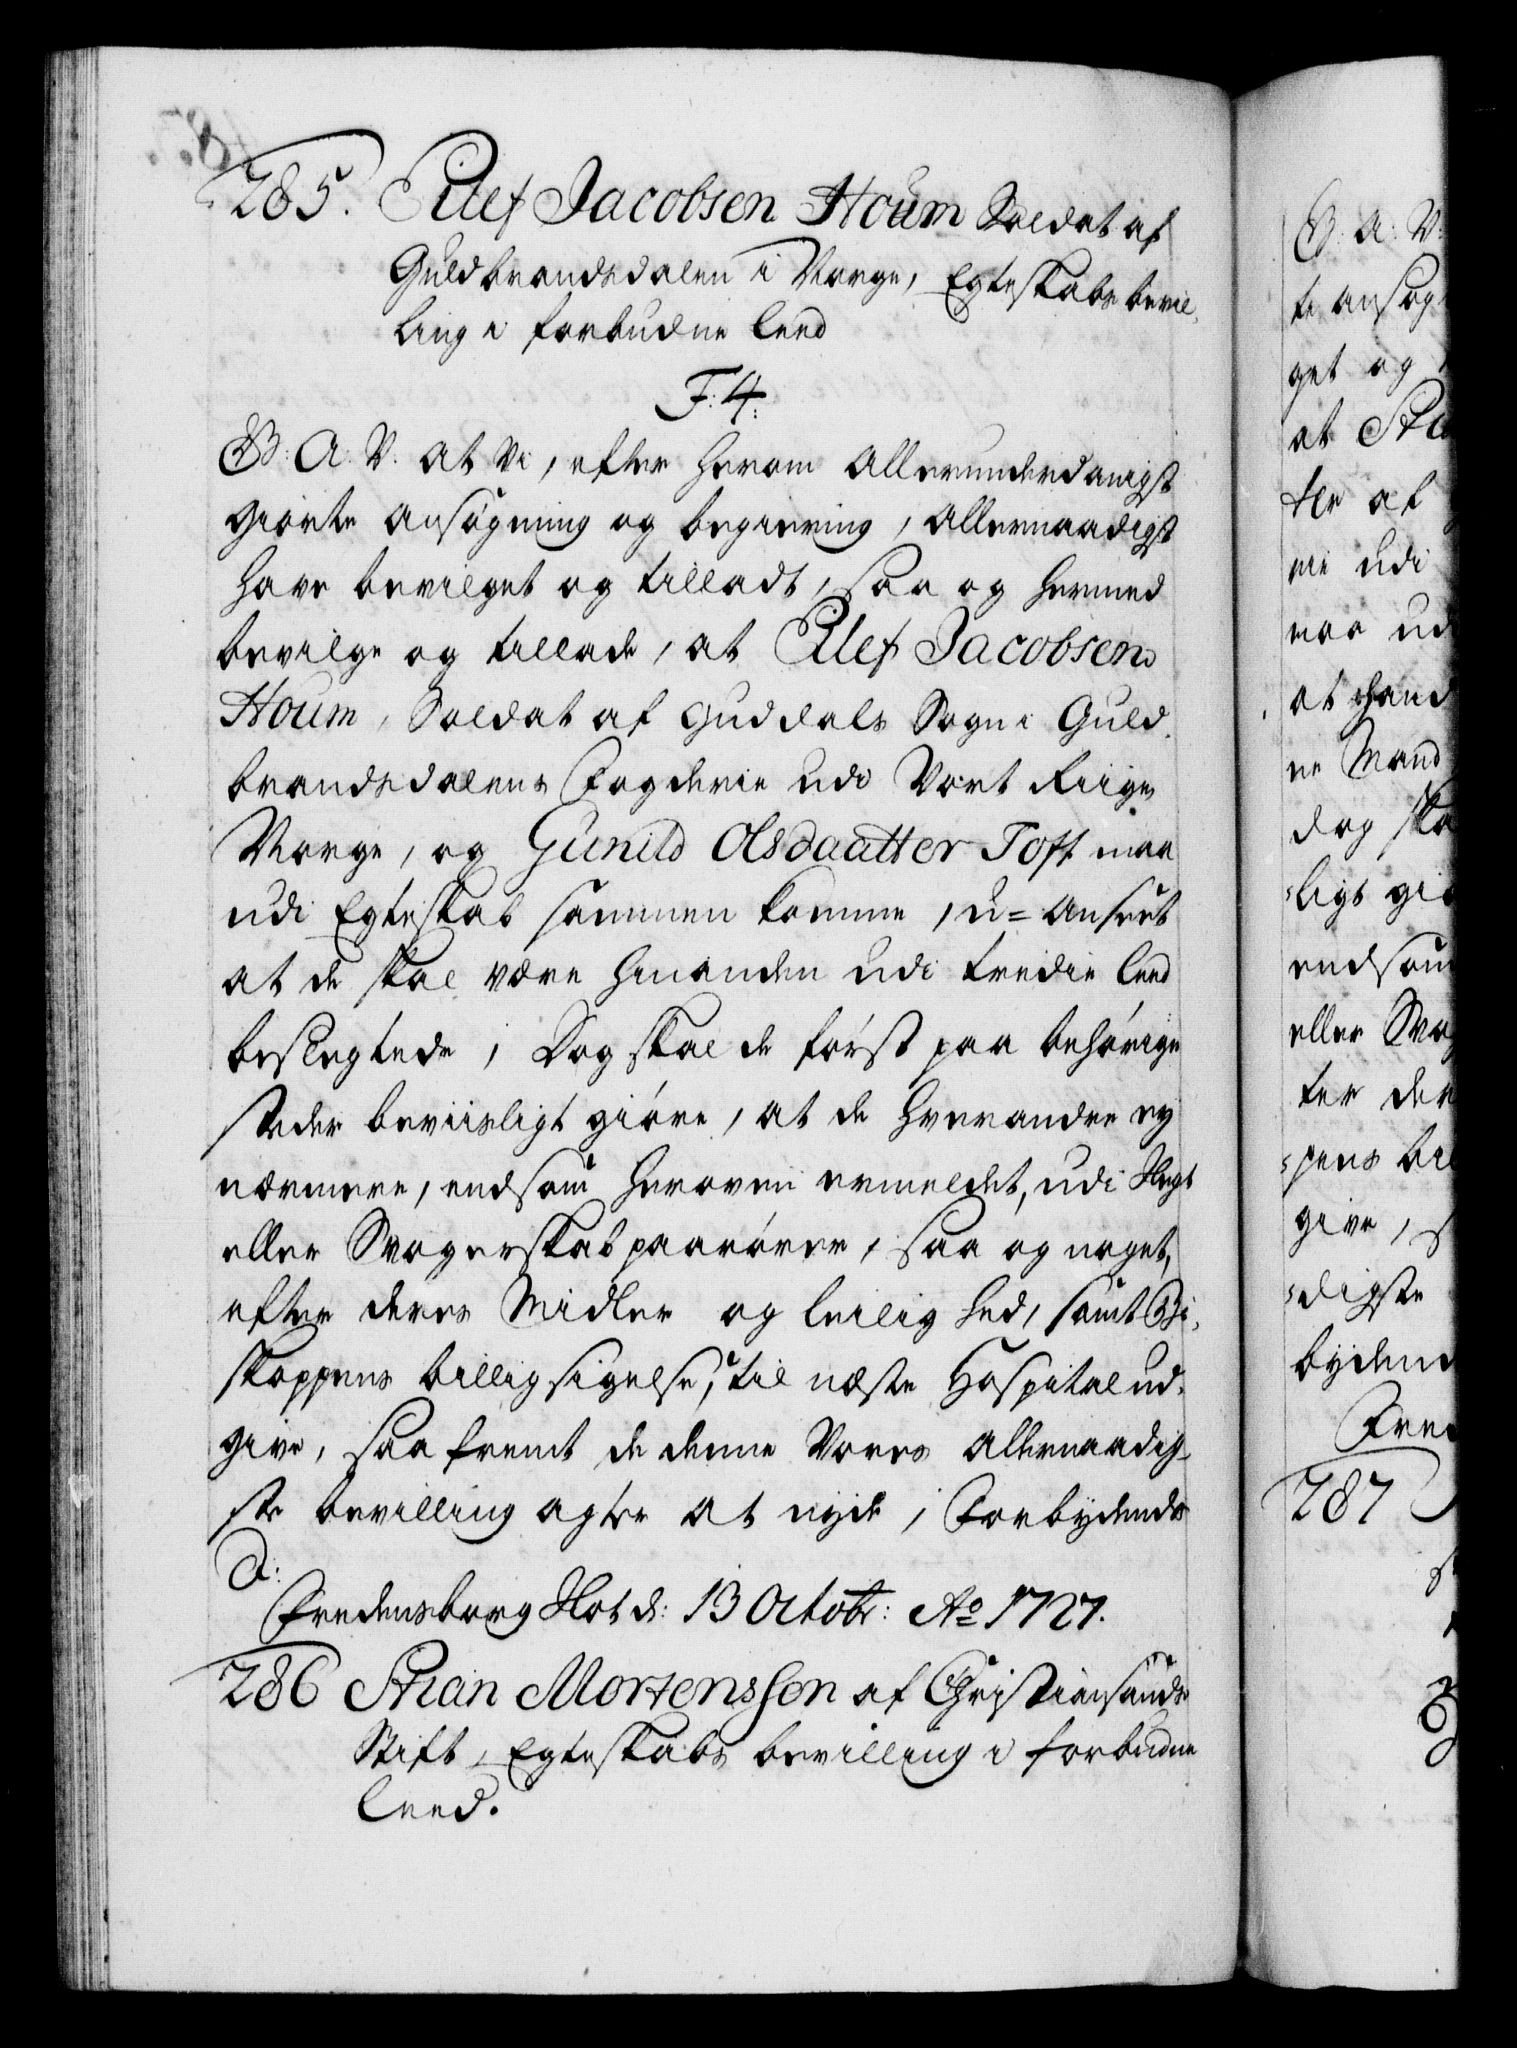 285. Eilef Jacobsen Houm Soldat af
Guldbrandsdalen i Norge, Egteskabs bevil-
ling i forbudne leed
F: 4.
G: A: V. at Vi, efter herom allerunderdanigst
giorte ansøgning og begiering, allernaadigst
have bevilget og tilladt, saa og hermed
bevilge og tillade, at Eilef Jacobsen
Houm, Soldat af Guddals Sogn i Guld-
brandsdalens Fogderie udi Vort Riige
Norge, og Gunild Olsdaatter Toft maa
udi Egteskab sammen komme, u=anseet
at de skal være hinanden udi tredie leed
beslegtede, Dog skal de først paa behørige
steder beviisligt giøre, at de hverandre ey
nærmere, end som heroven ermeldet, udi Slegt
eller Svogerskab paarører, saa og noget,
efter deres Midler og leilighed, samt Bi-
skoppens billigsigelse, til næste Hospital ud-
give, saafremt de denne Vores allernaadig-
ste bevilling agter at nyde, Forbydende
Fredensborg Slot d: 13 Octobr: Ao 1727.
286 Stian Mortenssen af Christiansands
Stift, Egteskabs bevilling i forbudne
Leed.
G: A: V:
te ansøg
get og
at Sti
ter af
nie udi
maa ud
at hand
ne Mand
dog ska
ligt giø
endsom
eller Svog
ter der
pens bil
give, s
digste
bydend
Fred
287